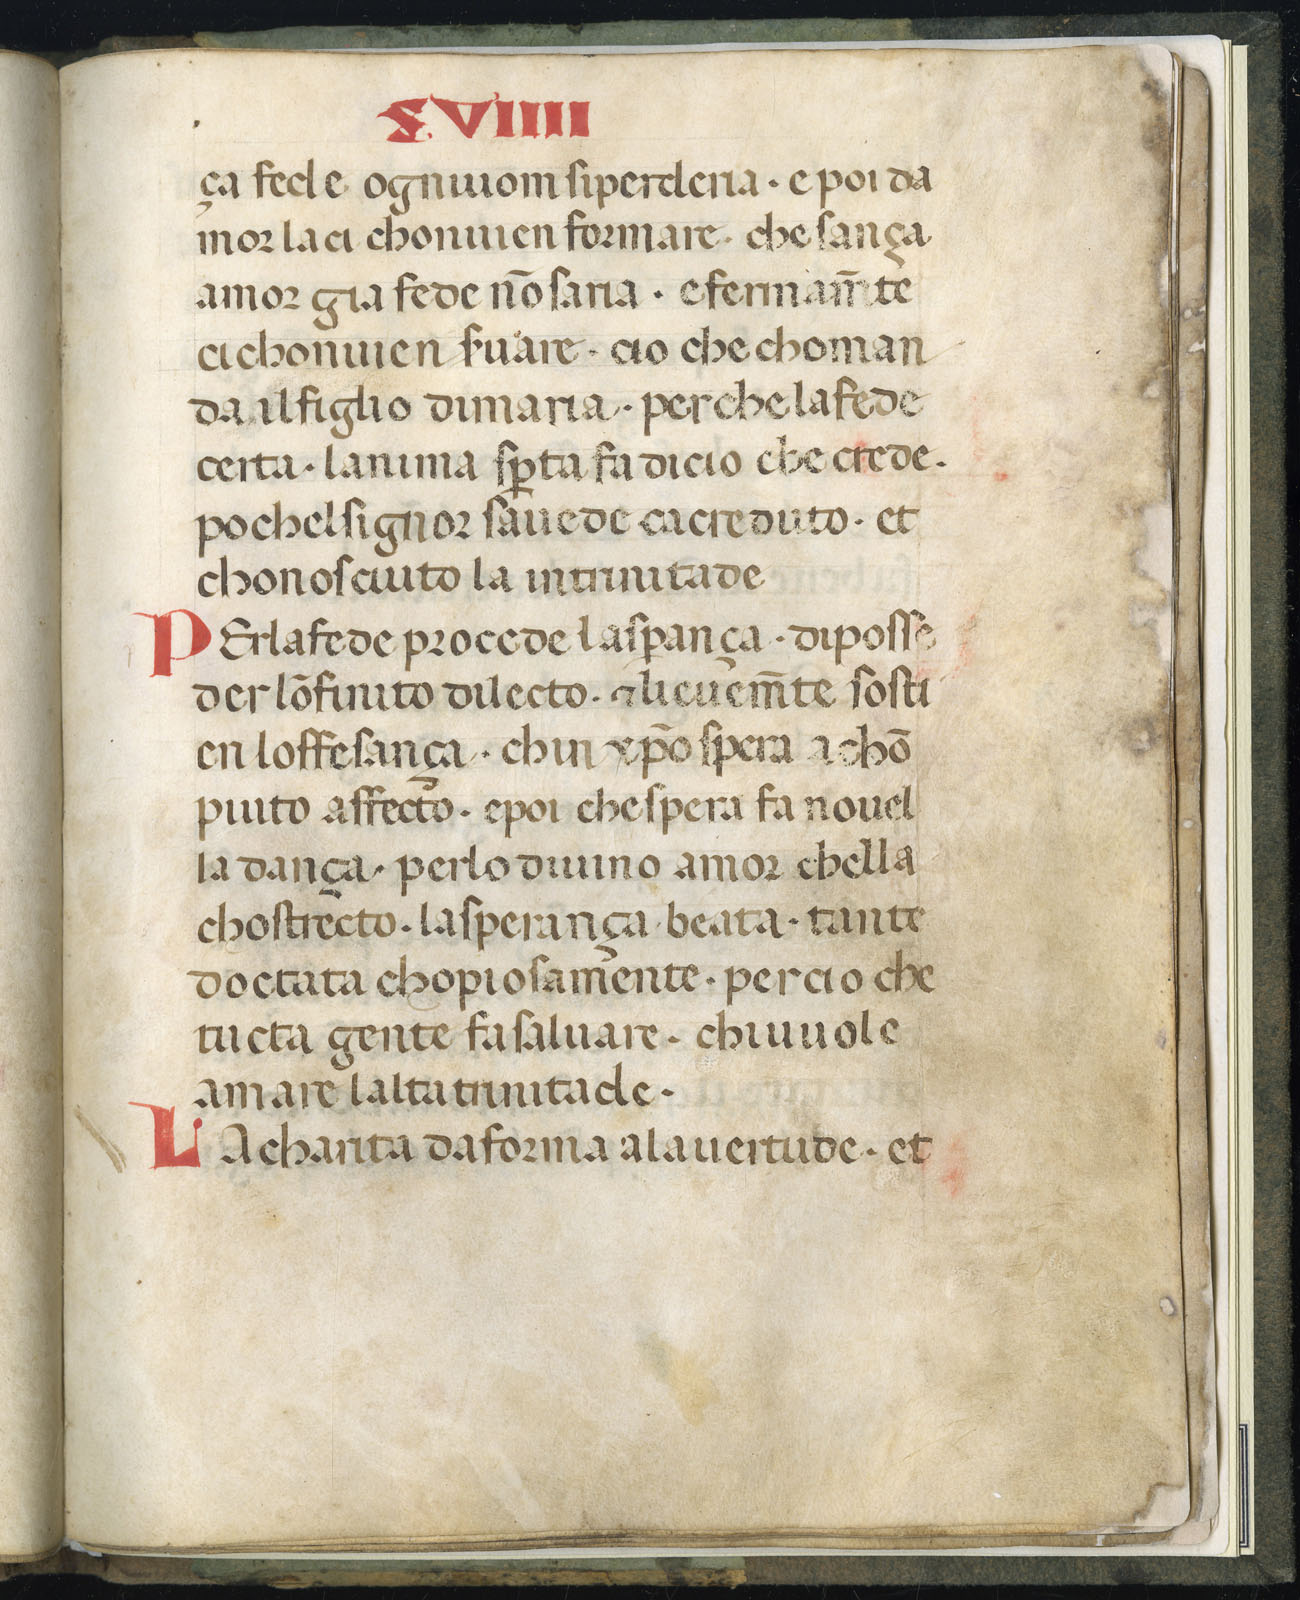 XVIIII
ça fede ogniuiom siperderia · e poi da
mor la ci chonuien formare · che sança
amor gia fede nō saria · e fermam̄te
ci chonuien ẜuare · cio che choman
da il figlio dimaria · perche la fede
certa · lanima sꝑta fa dicio che crede ·
po chel signor sauede ca creduto · et
chonosciuto la intrinitade
PErla fede procede la sꝑança · di posse
der lōfinito dilecto · ⁊ lieuem̄te sosti
en loffesança · chin xp̄o spera a chō
piuto affecto · epoi che spera fa nouel
la dança · perlo diuino amor chella
chostrecto · la sperança beata · tante
doctata chopiosamente · percio che
tucta gente fa saluare · chiuuole
amare lalta trinitade ·
LA charita da forma ala uertude · et